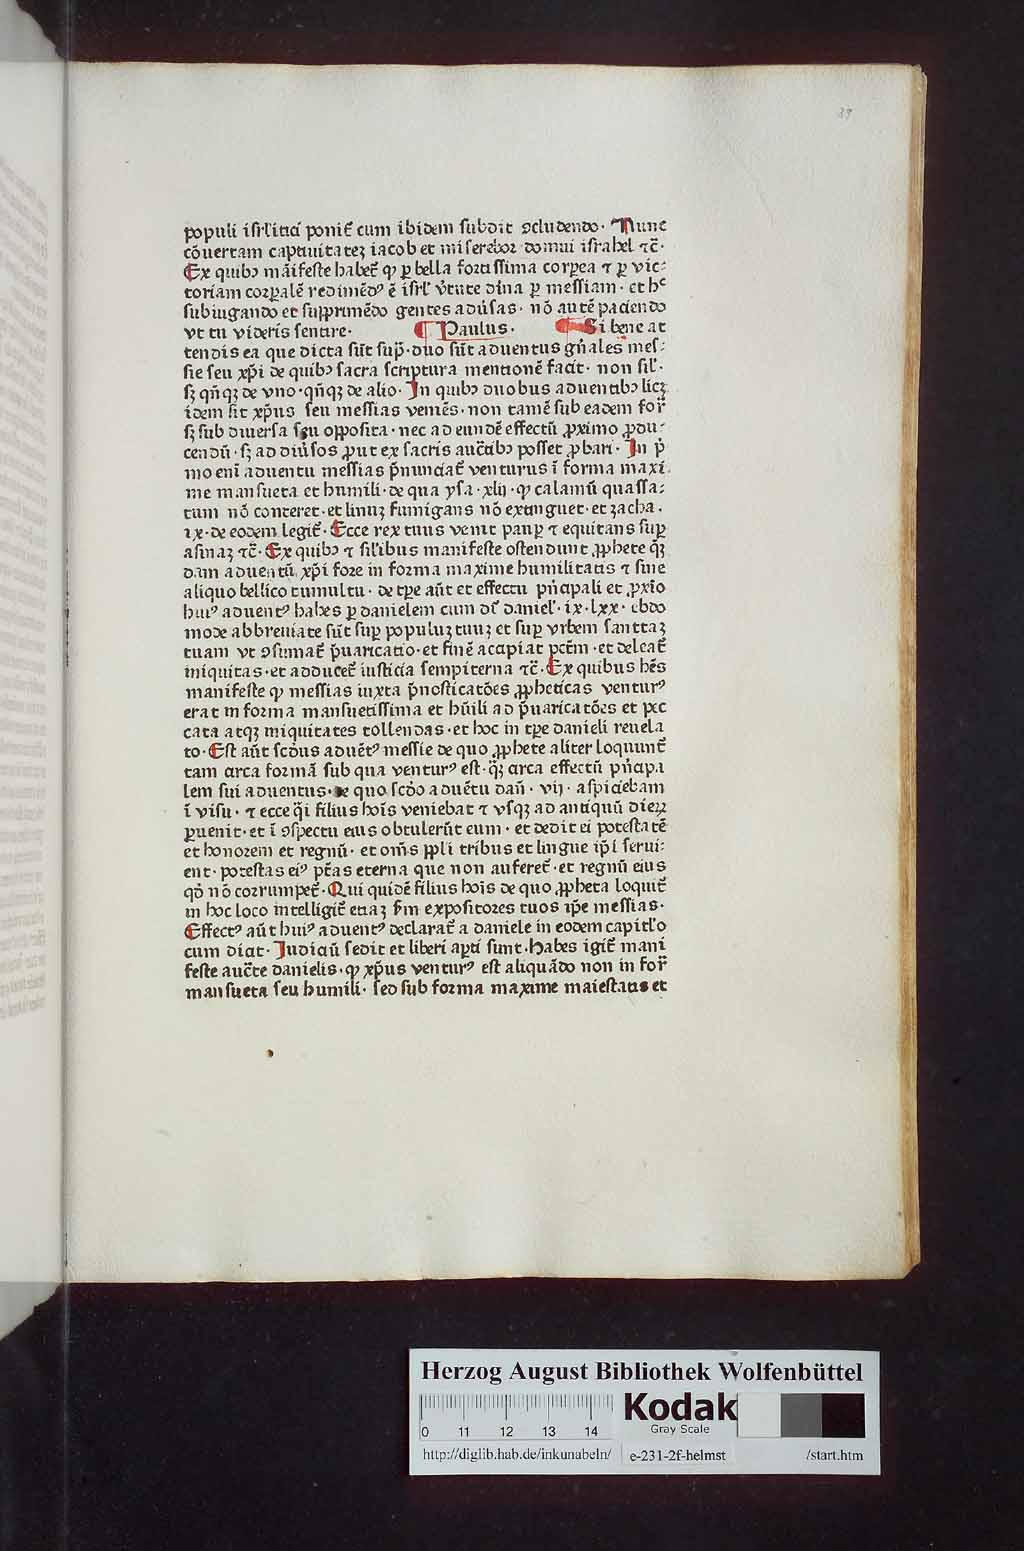 39
populi isrl'itici poniẽ cum ibidem subdit ↄcludendo· Nunc
cõuertam captiuitateʒ iacob et miserebor domui israhel ⁊c̃·
Ex quibꝰ mãifeste habet̃ ꝙ ꝑ bella fortissima corꝑea ⁊ ꝑ vic⸗
toriam corꝑalẽ redimẽdꝰ ẽ isrl' v̾tute diĩna ꝑ messiam· et hᶜ
subiugando et supprimẽdo gentes adũsas· nõ autẽ paciendo
vt tu videris sentire· ¶ Paulus· ¶ Si bene at
tendis ea que dicta sũt sup̃· duo sũt aduentus gñales mes⸗
sie seu xp̃i de quibꝰ sacra scriptura mentionẽ facit· non sil'·
sꝫ qñqꝫ de vno· qñqꝫ de alio· In quibꝰ duobus aduentibꝰ licꝫ
idem sit xp̃us seu messias veniẽs· non tamẽ sub eadem for̃
sꝫ sub diuersa seu opposita· nec ad eundẽ effectũ ꝓximo ꝓdu⸗
cendũ· sꝫ ad diũsos ꝓut ex sacris auc̃tibꝰ posset ꝓbari· In p̃
mo eni aduentu messias p̃nunciat̃ venturus ĩ forma maxi
me mansueta et humili· de qua ysa· xlij· ꝙ calamũ quassa⸗
tum nõ conteret· et linuʒ fumigans nõ extinguet· et zacha·
ix· de eodem legit̃· Ecce rex tuus venit pauꝑ ⁊ equitans suꝑ
asinaʒ ⁊c̃· Ex quibꝰ ⁊ sil'ibus manifeste ostendunt ꝓphete qꝫ̃
dam aduentũ xp̃i fore in forma maxime humilitatis ⁊ sine
aliquo bellico tumultu· de tꝑe aũt et effectu pñcipali et ꝓxĩo
huiꝰ aduentꝰ habes ꝑ danielem cum dr̃ daniel'· ix· lxx· ebdo
mode abbreuiate sũt suꝑ populuʒ tuuʒ et suꝑ vrbem sanctaʒ
tuam vt ↄsumat̃ p̃uaricatio· et finẽ accipiat pctm̃· et deleat̃
iniquitas· et adducet̃ iusticia sempiterna ⁊c̃· Ex quibus hẽs
manifeste ꝙ messias iuxta p̃nosticatões ꝓpheticas venturꝰ
erat in forma mansuetissima et hũili ad p̃uaricatões et pec
cata atqꝫ iniquitates tollendas· et hoc in tꝑe danieli reuela
to· Est aũt scdõus aduẽtꝰ messie de quo ꝓphete aliter loquunt̃
tam circa formã sub qua venturꝰ est· qꝫ̃ circa effectũ pñcipa
lem sui aduentus· de quo scdõ aduẽtu dañ· vij· aspiciebam
ĩ visu· ⁊ ecce q̃i filius hoĩs veniebat ⁊ vsqꝫ ad antiquũ dieꝝ
ꝑuenit· et ĩ ↄspectu eius obtulerũt eum· et dedit ei potestatẽ
et honorem et regnũ· et om̃s ppl̃i tribus et lingue ip̃i serui⸗
ent· potestas eiꝰ ptãs eterna que non auferet̃· et regnũ eius
qd̃ nõ corrumpet̃· Qui quidẽ filius hoĩs de quo ꝓpheta loquit̃
in hoc loco intelligit̃ etiaʒ fm̃ expositores tuos ip̃e messias·
Effectꝰ aũt huiꝰ aduentꝰ declarat̃ a daniele in eodem capitl'o
cum dicit· Iudiciũ sedit et libri aꝑti sunt· Habes igit̃ mani
feste auc̃te danielis· ꝙ xp̃us venturꝰ est aliquãdo non in for̃
mansueta seu humili· sed sub forma maxime maiestatis et
Herzog August Bibliothek Wolfenbüttel
0 11 12 13 14
Kodak
Gray Scale
http://diglib.hab.de/inkunabeln/ e-231-2f-helmst /start.htm